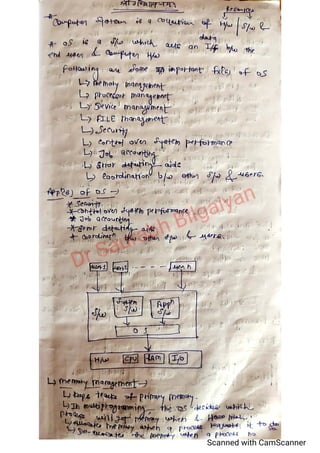 Resource
* Computer System is a collection of H/w | S/w &
data
* OS is a S/w which acts an I/f b/w the
end user & Computer H/w
Following are some important fxn(s) of OS
↳ Memory management
↳ processor management
↳ Device management
↳ FILE management
↳ Security
↳ control over system performance
↳ Job accounting
↳ Error detecting aids
↳ coordination b/w other S/w & users.
of OS →
* Security
* control over system performance
* Job accounting
* Error detecting aids
* coordinatn b/w other S/w & users.
Dr Saurabh Bilgaiyan
user1 user2 - - - - - user n
S/w System S/w Appn S/w
OS
H/w CPU RAM I/O
↳ memory management →
↳ keeps tracks of primary memory.
↳ In multiprogramming, the OS decides which
process will get memory when & How much.
↳ allocate memory when a process requests it to do so.
↳ De-allocate the memory when a process no
Scanned with CamScanner